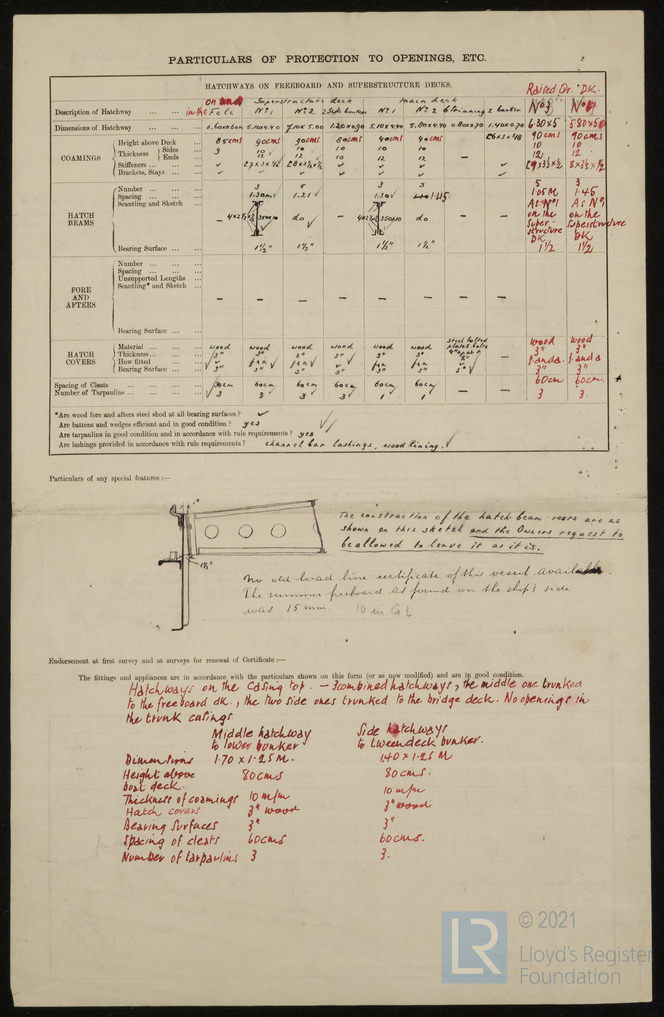 PARTICULARS OF PROTECTION TO OPENINGS, ETC.
HATCHWAYS ON FREEBOARD AND SUPERSTRUCTURE DECKS.
Raised Qr. DK.
on
Superstructure deck
main deck
Description of Hatchway in the Fcle No 1 No 2 2 Side bunker No 1 No 2 6 trimming 2 bunker No 3 No 4
Dimensions of Hatchway 0.60x0.60 5.10x4.40 7.10x5.00 1.20x0.90 5.10x4.40 5.80x4.40 0.80x0.70 1.40x0.70 6.30x5 5.80x5
COAMINGS
Height above Deck 85cms 90cms 90cms 80cms 40cms 40cms 26x3x3/8 90cms 90cms
Thickness Sides 9 10 10 10 10 10 10 10
Ends 12 12 10 12 12 12 12
Stiffeners 8x3½x½
Brackets, Stays
HATCH BEAMS
Number 3 5 3 3 5 3
Spacing 1.30m 1.21 1.30 1.45 1.05M 1.45
Scantling and Sketch – do – do – – As No 1 As No 1
on the on the
Super- Superstructure
structure DK
DK.
Bearing Surface 1½" 1½" 1½" 1½" 1½ 1½
FORE AND AFTERS
Number
Spacing
Unsupported Lengths
Scantling* and Sketch
– – – – – – – –
Bearing Surface
HATCH COVERS
steel bolted
Material wood wood wood wood wood wood wood wood
Thickness 3" 3" 3" 3" 3" 3" 3" 3"
How fitted f&a f&a f&a f&a f and a. f and a
Bearing Surface 3" 3" 3" 3" 3" 3" 3" 3" 3"
Spacing of Cleats 60cm 60cm 60cm 60cm 60cm 60cm – – 60cm 60cms.
Number of Tarpaulins 3 3 3 3 1 1 3 3.
*Are wood fore and afters steel shod at all bearing surfaces?
Are battens and wedges efficient and in good condition? yes
Are tarpaulins in good condition and in accordance with rule requirements? yes
Are lashings provided in accordance with rule requirements? channel bar lashings, wood lining.
Particulars of any special features:—
The construction of the hatch beam seats are as
shown on this sketch and the Owners request to
be allowed to leave it as it is.
1½"
No old load line certificate of this vessel available
The summer freeboard as found on the ship's side
was 15 mm. 10 m GL
Endorsement at first survey and at surveys for renewal of Certificate:—
The fittings and appliances are in accordance with the particulars shown on this form (or as now modified) and are in good condition.
Hatchways on the Casing top. – 3 combined hatchways, the middle one trunked
to the freeboard dk., the two side ones trunked to the bridge deck. No openings in
the trunk casings
Middle hatchway Side hatchways
to lower bunker to tweendeck bunker.
Dimensions 1.70 x 1.25 M. 1.40 x 1.25 M
Height above 80cms 80cms.
boat deck.
Thickness of coamings 10 m/m 10 m/m
Hatch covers 3" wood 3" wood
Bearing Surfaces 3" 3"
Spacing of cleats 60cms 60cms.
Number of tarpaulins 3 3.
LR
© 2021
Lloyd's Register
Foundation